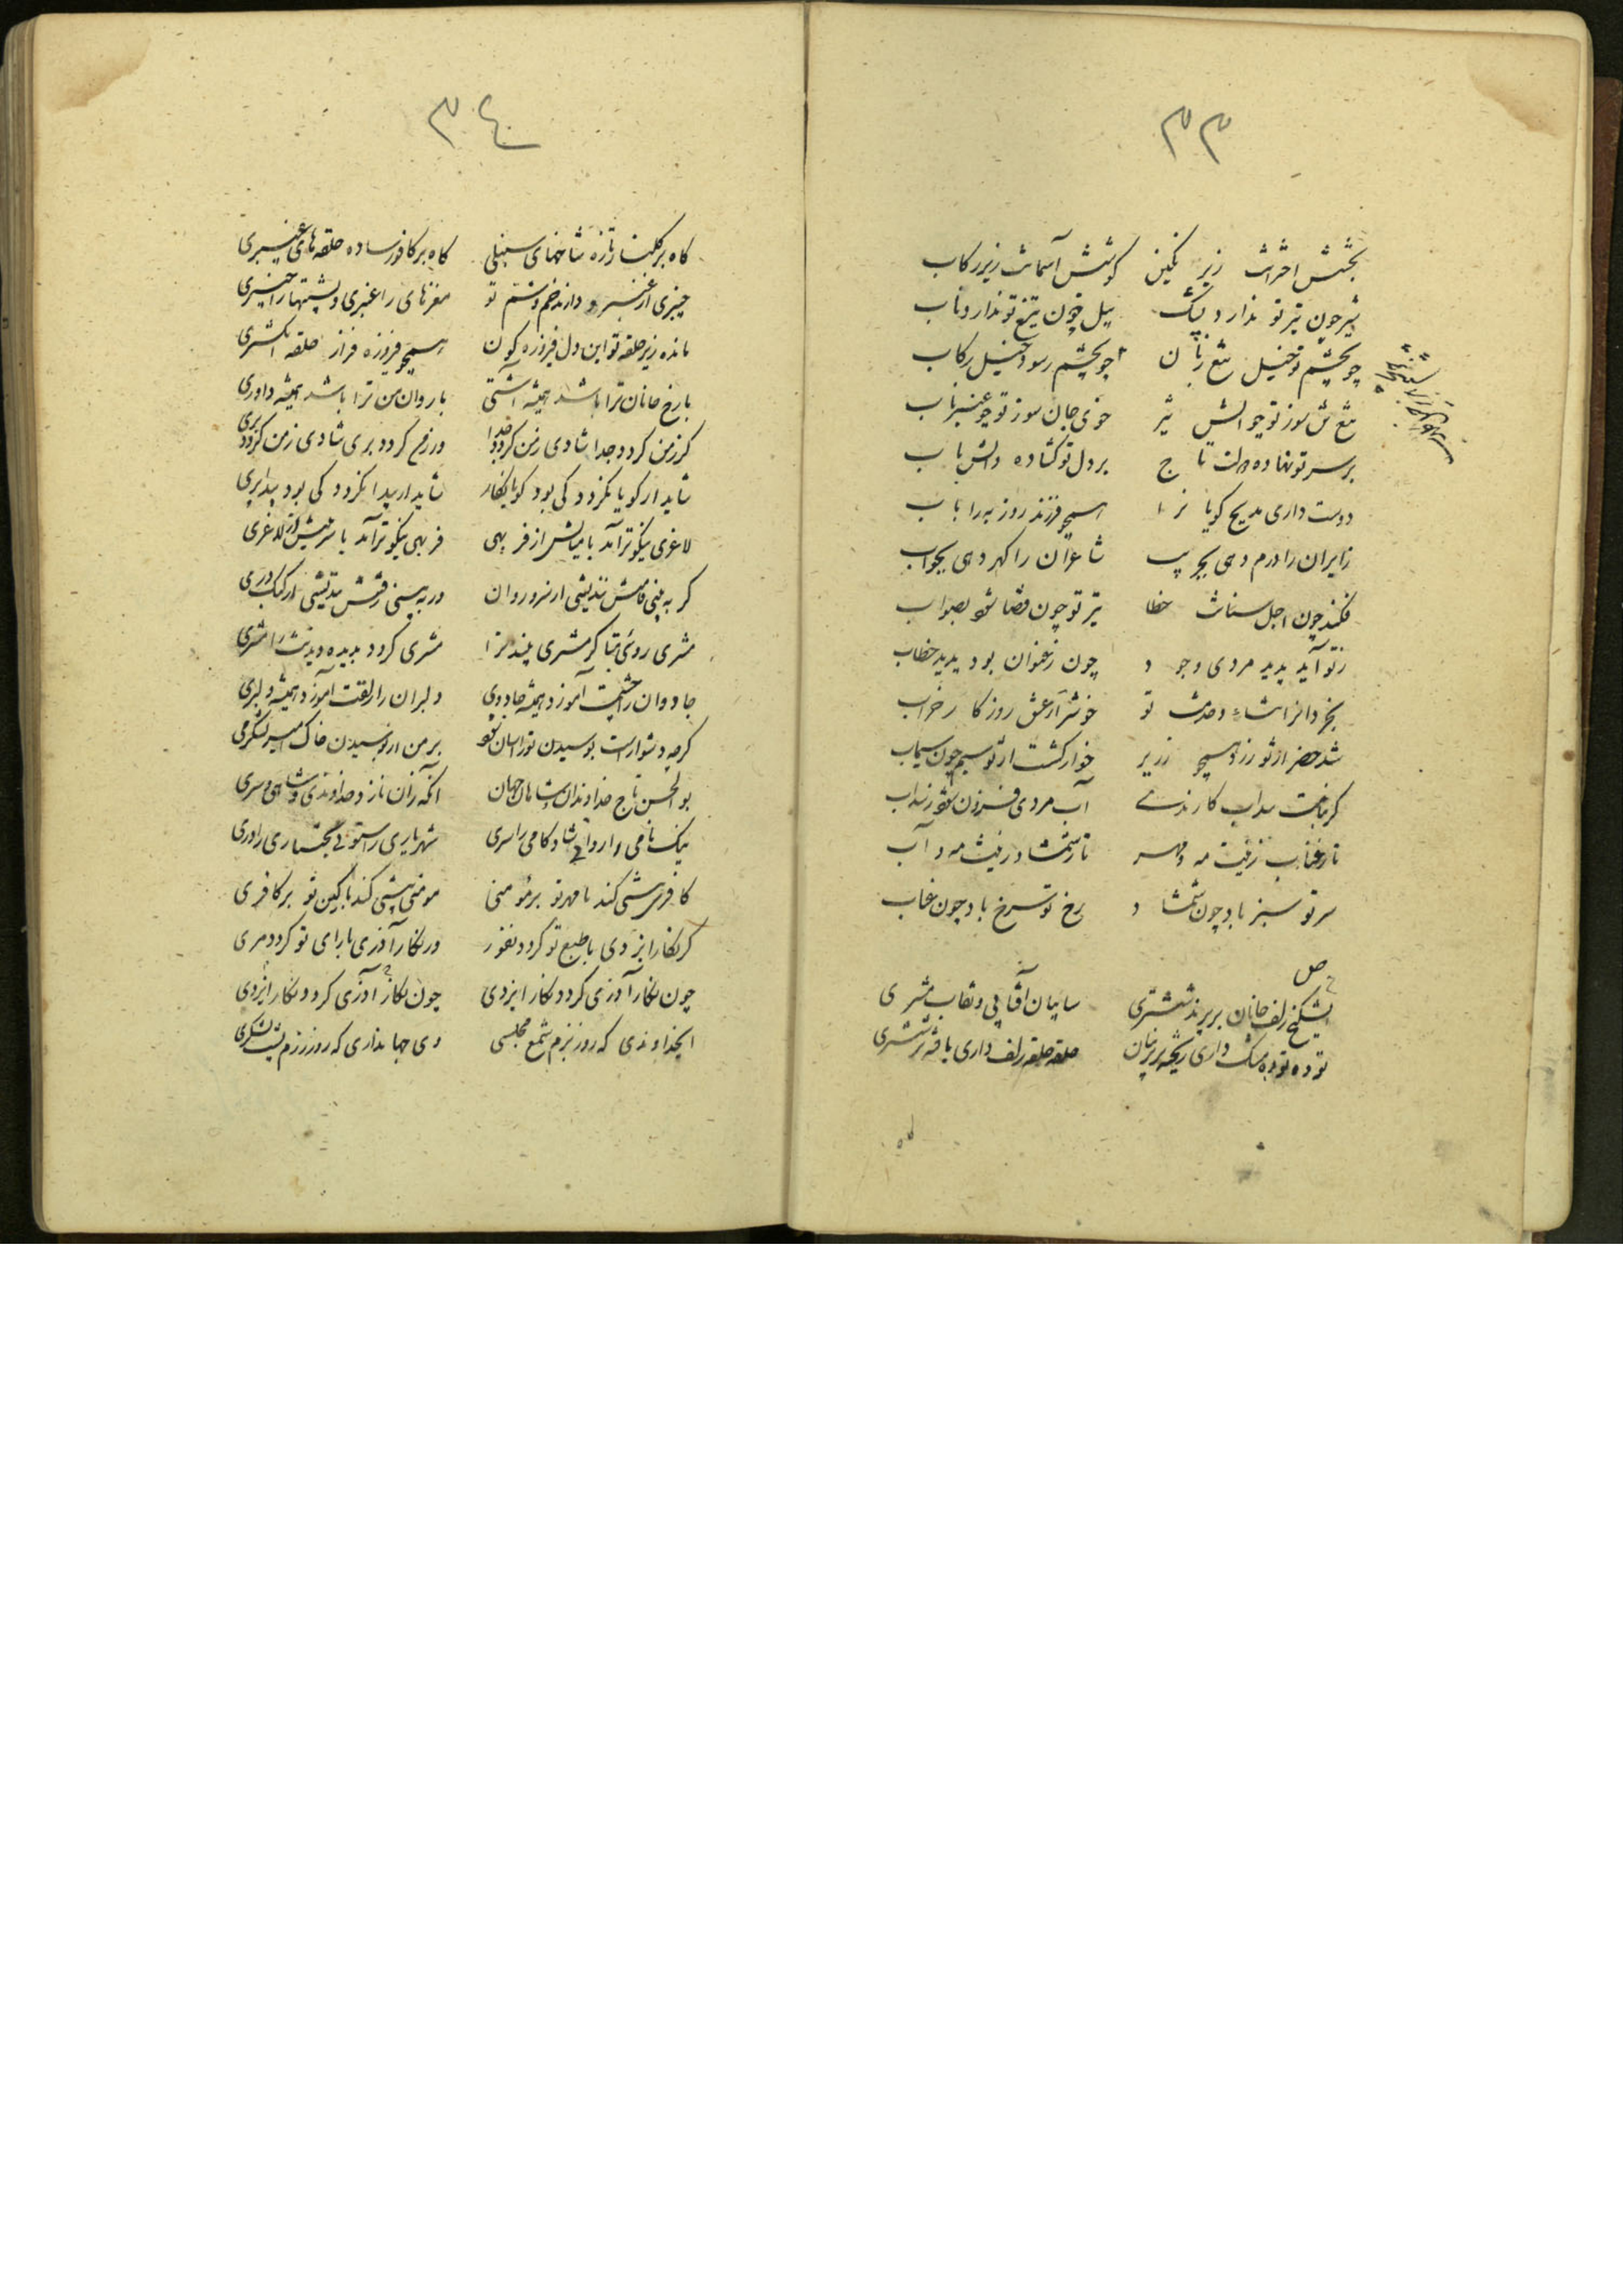 ٣٣
بخشش اخترانت زیر نگین کوشش آسمانت زیر رکاب
شیر چون تیر تو ندارد چنگ پیل چون تیغ تو ندارد ناب
چو بچشم تو خیل تیغ زنان چو بچشم رسود خیل رکاب
تیغ تن سوز تو چو آتش تیز خوی جان سوز تو چو عنبر ناب
بر سر تو نهاده دولت تاج بر دل تو گشاده دانش باب
دوست داری مدیح گویا نرا همچو فرزند روز به را باب
زایران را درم دهی بجریب شاعران را گهر دهی بجواب
فکند چون اجل سنانت خطا تیر تو چون قضا شود بصواب
ز تو آید پدید مردی وجود چون ز عنوان بود پدید خطاب
بخرد انر انشاء و مدحت تو خوشتر از عشق روزگار خراب
شد حضر از تو زر همچو زریر خوار گشت از تو سیم چون سیماب
آب مردی فزون شود ز نداب
تا ز عناب زینت مه و مهر تا ز شمشاد زینت مه و آب
سر تو سبز باد چون شمشاد رخ تو سرخ باد چون عناب
ص
بشکنج زلف جانان بر پرند ششتری سایبان آفتابی و نقاب مشتری
توده توده مشک داری ریخته بر پرنیان حلقه حلقه زلف داری بافته بر ششتری
٣٤
گاه بر گلنار تازه شاخهای سنبلی گاه بر کافور ساده حلقه های عنبری
چنبری از عنبر و دارند خم و شم تو مغزهای را عنبری و پشتها را چنبری
مانده زیر حلقه تو این دل فیروزه گون همچو فیروزه فراز حلقه انگشتری
با رخ جانان ترا باشد همیشه آشتی با روان من ترا باشد همیشه داوری
گر ز من گردد جدا شادی ز من گردد جدا ور ز من گردد بری شادی ز من گردد بری
شاید ار گویا نگردد کی بود گویا نگار شاید ار پیدا نگردد کی بود پیدا پری
لاغری نیکوتر آید با میانش از فربهی فربهی نیکوتر آید با سرینش از لاغری
گر به بینی قامتش نندیشی از سرو روان ور به بینی رفتنش نندیشی از کبک دری
مشتری روئی بتا گر مشتری بیند ترا مشتری گردد بدیده دیدنت را مشتری
جادوان را چشمت آموزد همیشه جادوی دلبران را زلفت آموزد همیشه دلبری
گرچه دشوارست بوسیدن تو را آسان شود بر من از بوسیدن خاک امیر لشکری
بوالحسن تاج خداوندان و شاهان جهان آنکه زان نازد خداوندی و شاهی و سری
نیک نامی و اروائی شادکامی را سری شهریاری را ستونی بختیاری را وری
کافری پیشی کند با مهر تو بر مؤمنی مومنی پیشی کند با کین تو بر کافری
گر نگار ایزدی با طبع تو گردد نفور ور نگار آذری با رای تو گردد مری
چون نگار آذری گردد نگار ایزدی چون نگار آذری گردد نگار ایزدی
ایخداوندی که روز بزم شمع مجلسی وی جهانداری که روز رزم پشت لشکری